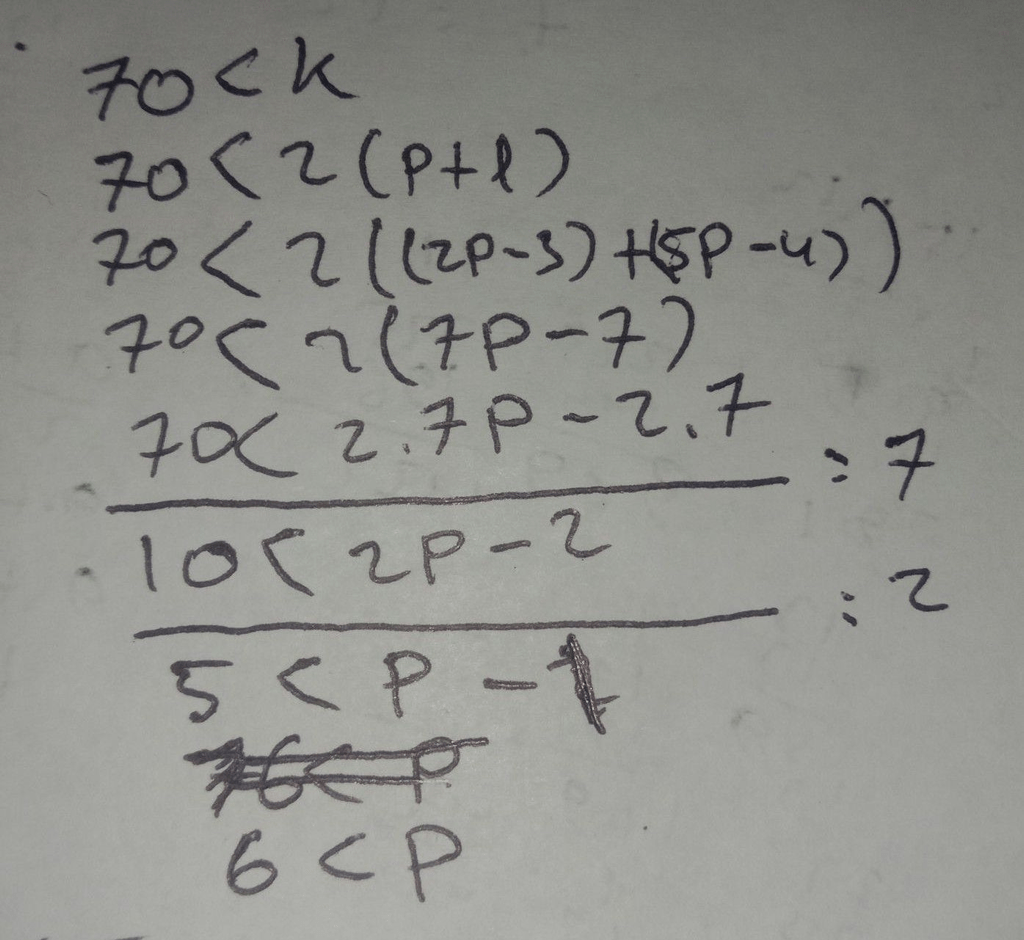 70 < k
70 < 2(p+l)
70 < 2((2p-3)+(5p-4))
70 < 2(7p-7)
70 < 2.7p-2.7
: 7
10 < 2p-2
: 2
5 < p-1
6 < p